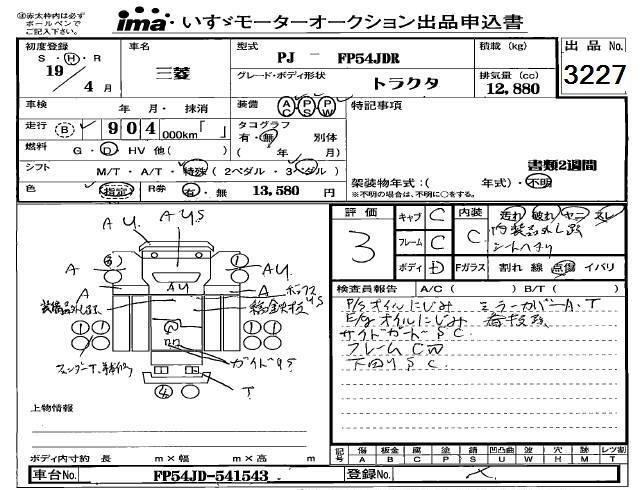 ㊟赤太枠内は必ず
ボールペンで
ご記入下さい。
ima・いすゞモーターオークション出品申込書
初度登録 車名 型式 積載(kg) 出品No.
S・H・R 三菱 PJ － FP54JDR 3227
19年 4月 グレード・ボディ形状 トラクタ 排気量(cc) 12,880
車検 年 月・抹消 装備 AC PS PW 特記事項
走行 B 904,000km「 」 タコグラフ 有・無 別体
燃料 G・D・HV 他( ) ( 年 月)
シフト M/T・A/T・特殊(2ペダル・3ペダル) 書類2週間
色 指定 R券 有・無 13,580円 架装物年式:( 年式)・不明
※不明の場合は、不明に○をする。
評価 3 キャブ C 内装 C 汚れ 破れ ヤニ スレ
フレーム C 内装品外し跡
ボディ D Fガラス 割れ 線 点傷 イバリ
検査員報告 A/C( ) B/T( )
P/Sオイルにじみ ミラーカバーA.T
E/gオイルにじみ 看板跡
サイドガード S C
フレーム C W
下回り S C
AYS
AY
A
A
AY
A
A
ボックス
YS
ガイド YS
T
上物情報
ボディ内寸約 長 m×幅 m×高 m
記号 傷 A 板金 B 腐 C 塗 P 錆 S 凹凸曲 U 波 W 穴 H 跡 M レツ割 T
車台No. FP54JD-541543 登録No.